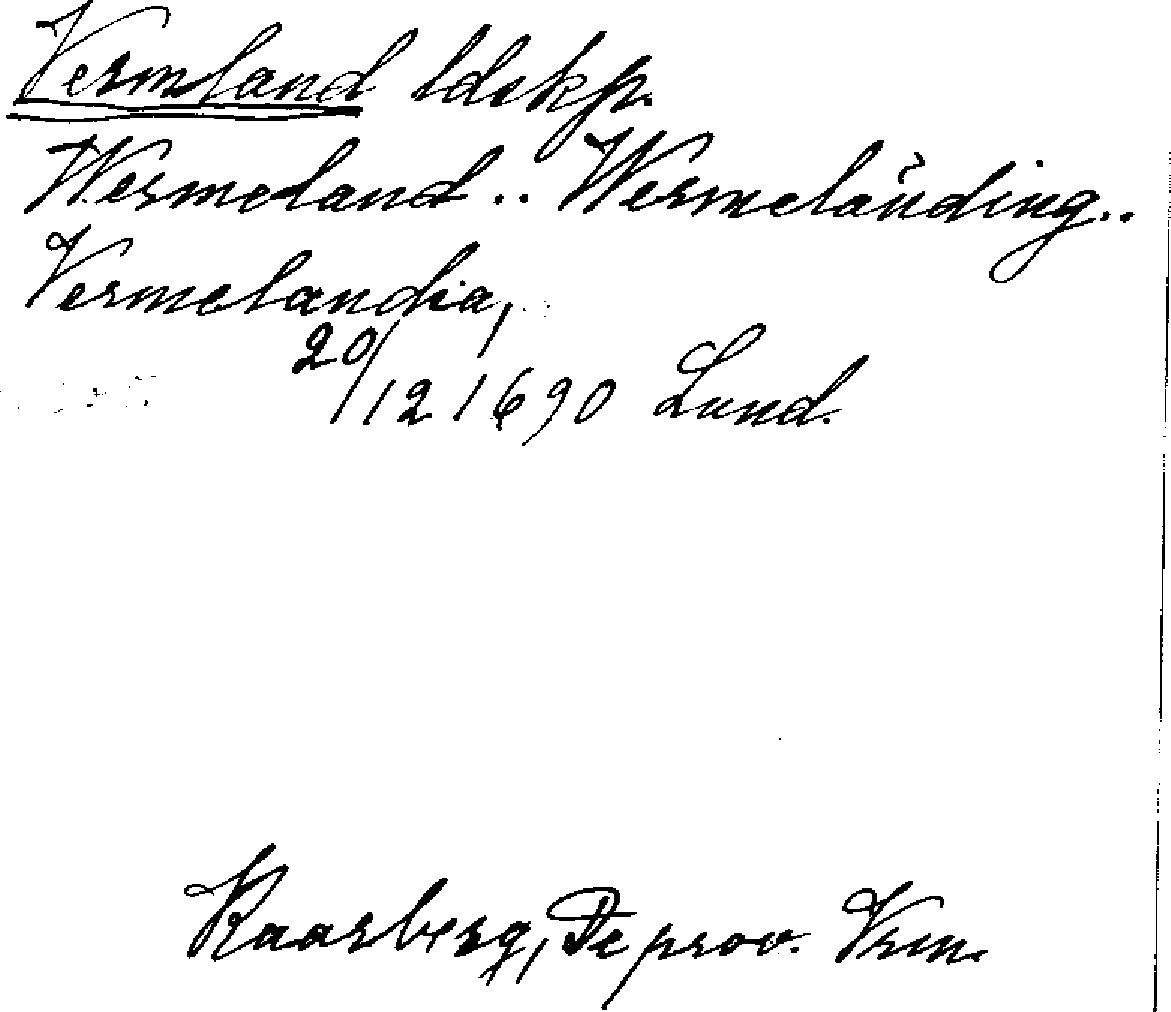 Vermland ldskp.
Wermeland .. Wermeländing..
Vermelandia,
20/12 1690 Lund.
Kaarberg, De prov. Vrm.